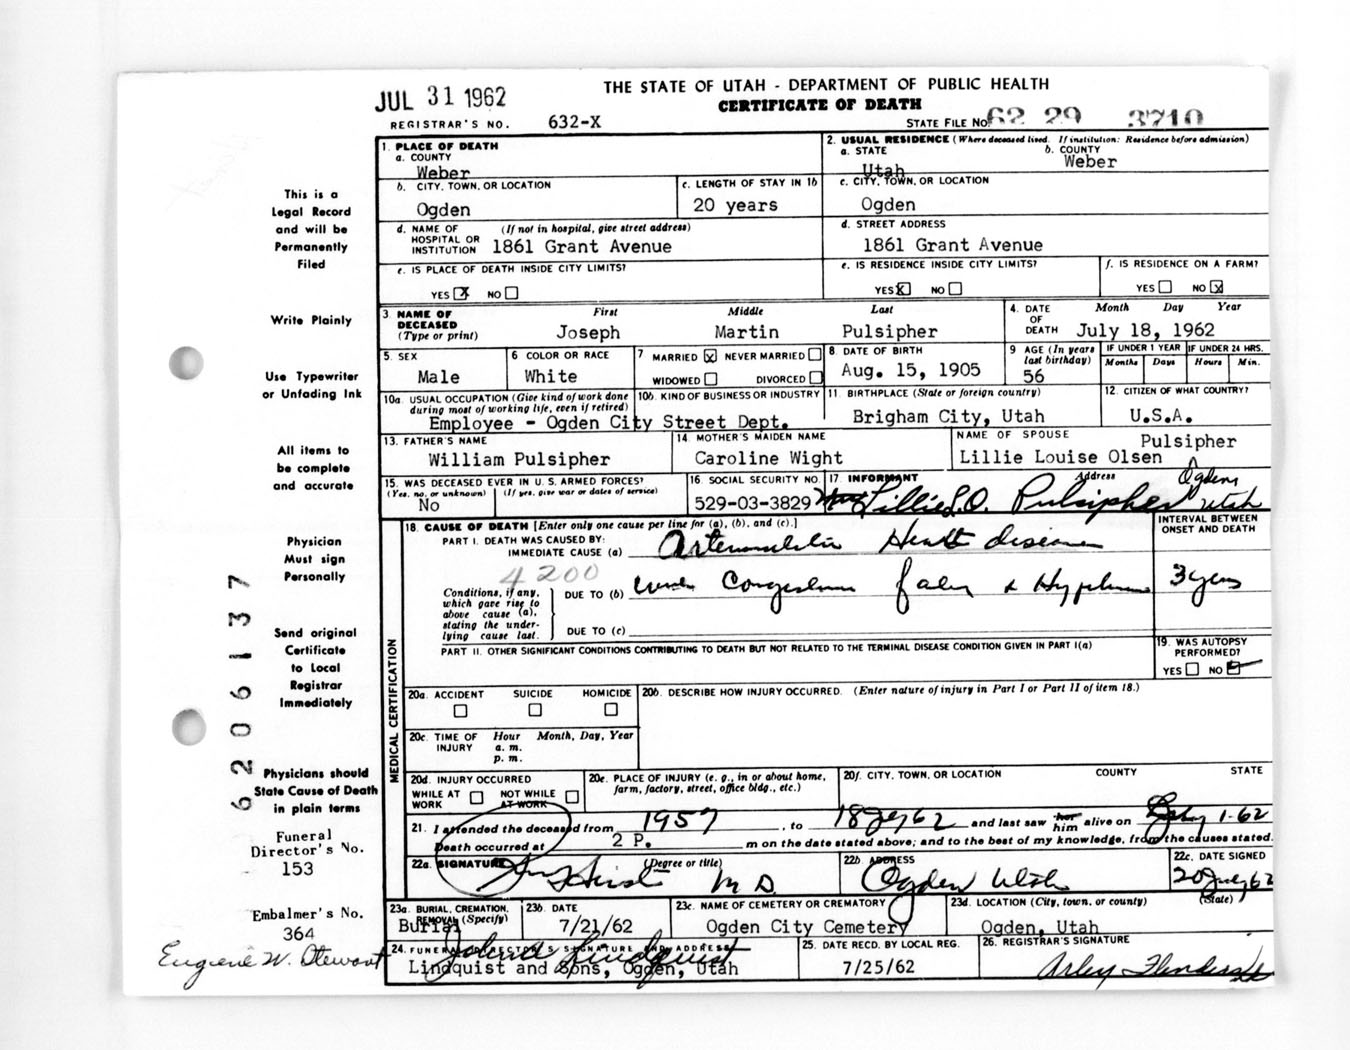 THE STATE OF UTAH - DEPARTMENT OF PUBLIC HEALTH
JUL 31 1962
CERTIFICATE OF DEATH
REGISTRAR'S NO. 632-X
STATE FILE NO. 62 29 3710
1. PLACE OF DEATH
a. COUNTY
Weber
2. USUAL RESIDENCE (Where deceased lived. If institution: Residence before admission)
a. STATE
Utah
b. COUNTY
Weber
b. CITY, TOWN, OR LOCATION
Ogden
c. LENGTH OF STAY IN 1b
20 years
c. CITY, TOWN, OR LOCATION
Ogden
d. NAME OF HOSPITAL OR INSTITUTION (If not in hospital, give street address)
1861 Grant Avenue
d. STREET ADDRESS
1861 Grant Avenue
e. IS PLACE OF DEATH INSIDE CITY LIMITS?
YES X NO
e. IS RESIDENCE INSIDE CITY LIMITS?
YES X NO
f. IS RESIDENCE ON A FARM?
YES NO X
3. NAME OF DECEASED (Type or print)
First Middle Last
Joseph Martin Pulsipher
4. DATE OF DEATH Month Day Year
July 18, 1962
5. SEX
Male
6 COLOR OR RACE
White
7 MARRIED X NEVER MARRIED
WIDOWED DIVORCED
8. DATE OF BIRTH
Aug. 15, 1905
9 AGE (In years last birthday)
56
IF UNDER 1 YEAR
Months Days
IF UNDER 24 HRS.
Hours Min.
10a. USUAL OCCUPATION (Give kind of work done during most of working life, even if retired)
10b. KIND OF BUSINESS OR INDUSTRY
Employee - Ogden City Street Dept.
11. BIRTHPLACE (State or foreign country)
Brigham City, Utah
12. CITIZEN OF WHAT COUNTRY?
U.S.A.
13. FATHER'S NAME
William Pulsipher
14 MOTHER'S MAIDEN NAME
Caroline Wight
NAME OF SPOUSE
Pulsipher
Lillie Louise Olsen
15. WAS DECEASED EVER IN U. S. ARMED FORCES?
(Yes, no, or unknown) (If yes, give war or dates of service)
No
16. SOCIAL SECURITY NO.
529-03-3829
17. INFORMANT Address
Lillie L. O. Pulsipher Ogden Utah
18. CAUSE OF DEATH [Enter only one cause per line for (a), (b), and (c).]
PART I. DEATH WAS CAUSED BY:
IMMEDIATE CAUSE (a) Heart disease
INTERVAL BETWEEN ONSET AND DEATH
4200
Conditions, if any, which gave rise to above cause (a), stating the underlying cause last.
DUE TO (b)
3 yrs
DUE TO (c)
PART II. OTHER SIGNIFICANT CONDITIONS CONTRIBUTING TO DEATH BUT NOT RELATED TO THE TERMINAL DISEASE CONDITION GIVEN IN PART I(a)
19. WAS AUTOPSY PERFORMED?
YES NO
MEDICAL CERTIFICATION
20a. ACCIDENT SUICIDE HOMICIDE
20b. DESCRIBE HOW INJURY OCCURRED. (Enter nature of injury in Part I or Part II of item 18.)
20c. TIME OF INJURY Hour Month, Day, Year
a. m.
p. m.
20d. INJURY OCCURRED
WHILE AT WORK NOT WHILE AT WORK
20e. PLACE OF INJURY (e. g., in or about home, farm, factory, street, office bldg., etc.)
20f. CITY, TOWN, OR LOCATION COUNTY STATE
21. I attended the deceased from 1957, to 18 July 62 and last saw her him alive on July 1-62
Death occurred at 2 P. m on the date stated above; and to the best of my knowledge, from the causes stated.
22a. SIGNATURE (Degree or title)
M D.
22b. ADDRESS
Ogden Utah
22c. DATE SIGNED
20 July 62
23a. BURIAL, CREMATION, REMOVAL (Specify)
Burial
23b. DATE
7/21/62
23c. NAME OF CEMETERY OR CREMATORY
Ogden City Cemetery
23d. LOCATION (City, town, or county) (State)
Ogden, Utah
24. FUNERAL DIRECTOR'S SIGNATURE AND ADDRESS
Lindquist and Sons, Ogden, Utah
25. DATE RECD. BY LOCAL REG.
7/25/62
26. REGISTRAR'S SIGNATURE
This is a
Legal Record
and will be
Permanently
Filed
Write Plainly
Use Typewriter
or Unfading Ink
All items to
be complete
and accurate
Physician
Must sign
Personally
Send original
Certificate
to Local
Registrar
Immediately
Physicians should
State Cause of Death
in plain terms
Funeral
Director's No.
153
Embalmer's No.
364
Eugene W. Stewart
6206137